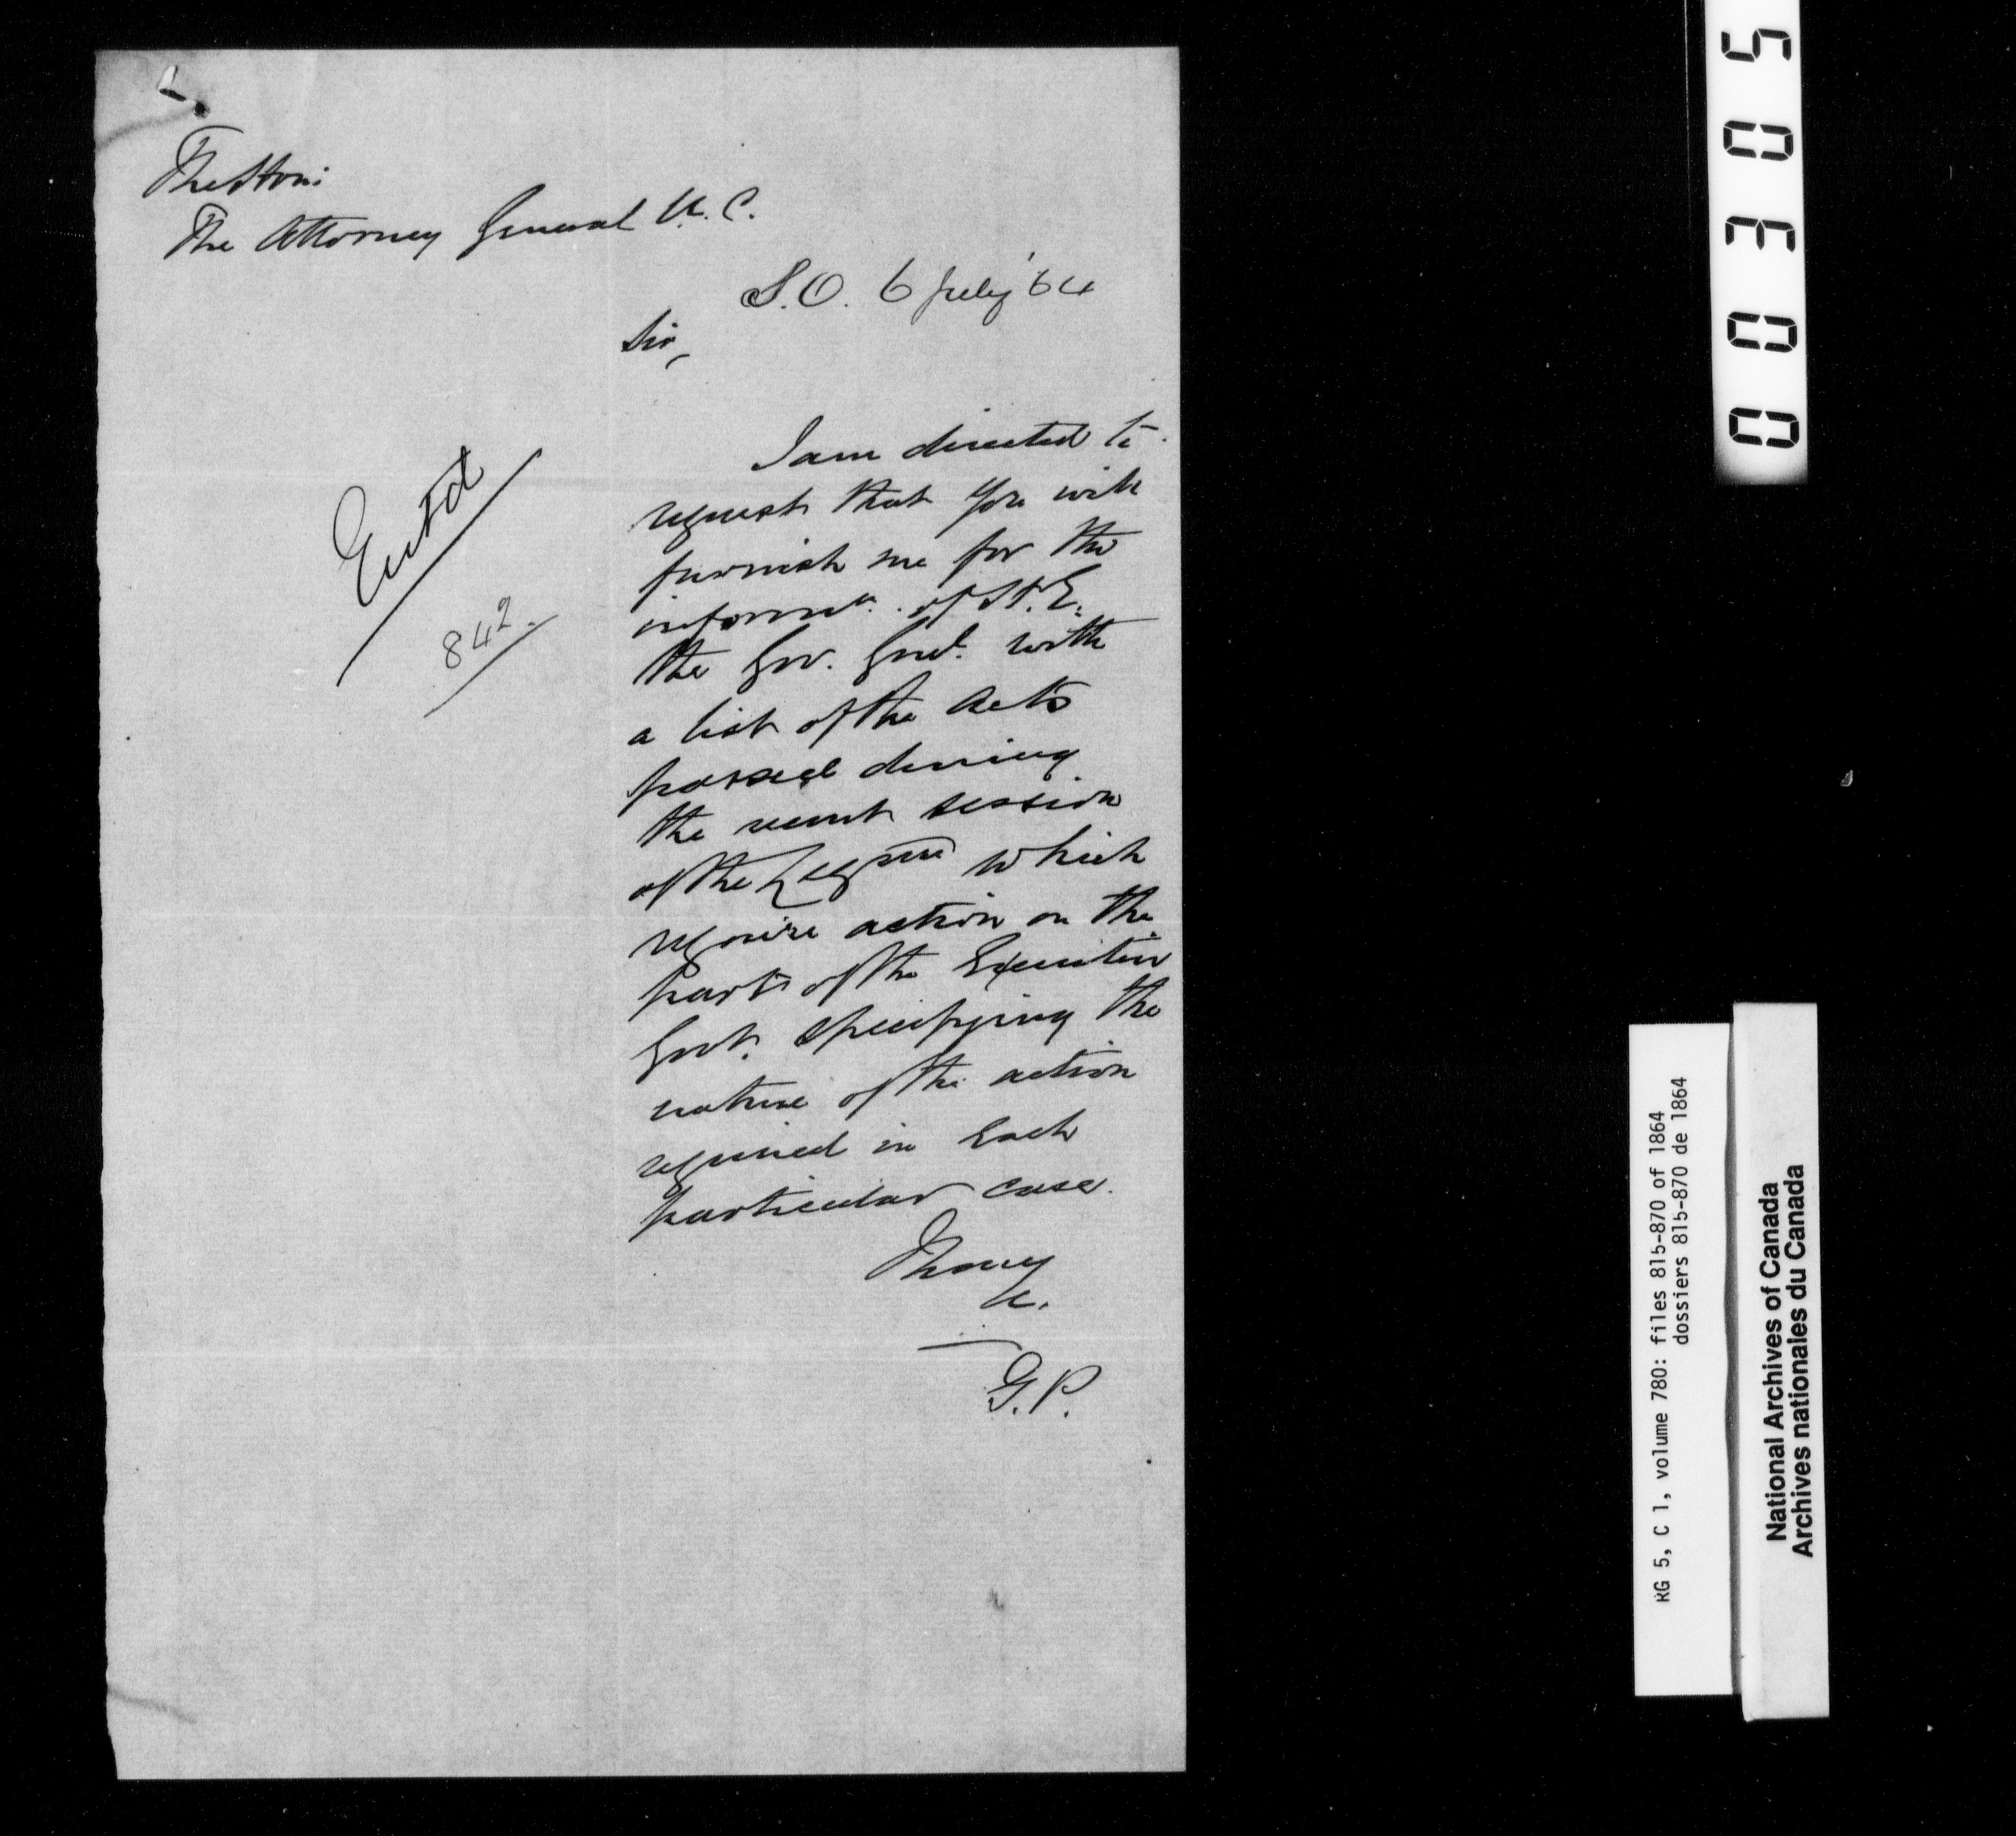 The Hon:
The Attorney General U.C.
S.O. 6 July '64
Sir,
Entd
842.
I am directed to
request that you will
furnish me for the
informn. of H.E.
the Gov. Genl. with
a list of the Acts
passed during
the recent session
of the Legre which
require action on the
part of the Executive
Govt. specifying the
nature of the action
required in each
particular case.
I have
&c.
G.P.
00305
RG 5, C 1, volume 780: files 815-870 of 1864
dossiers 815-870 de 1864
National Archives of Canada
Archives nationales du Canada